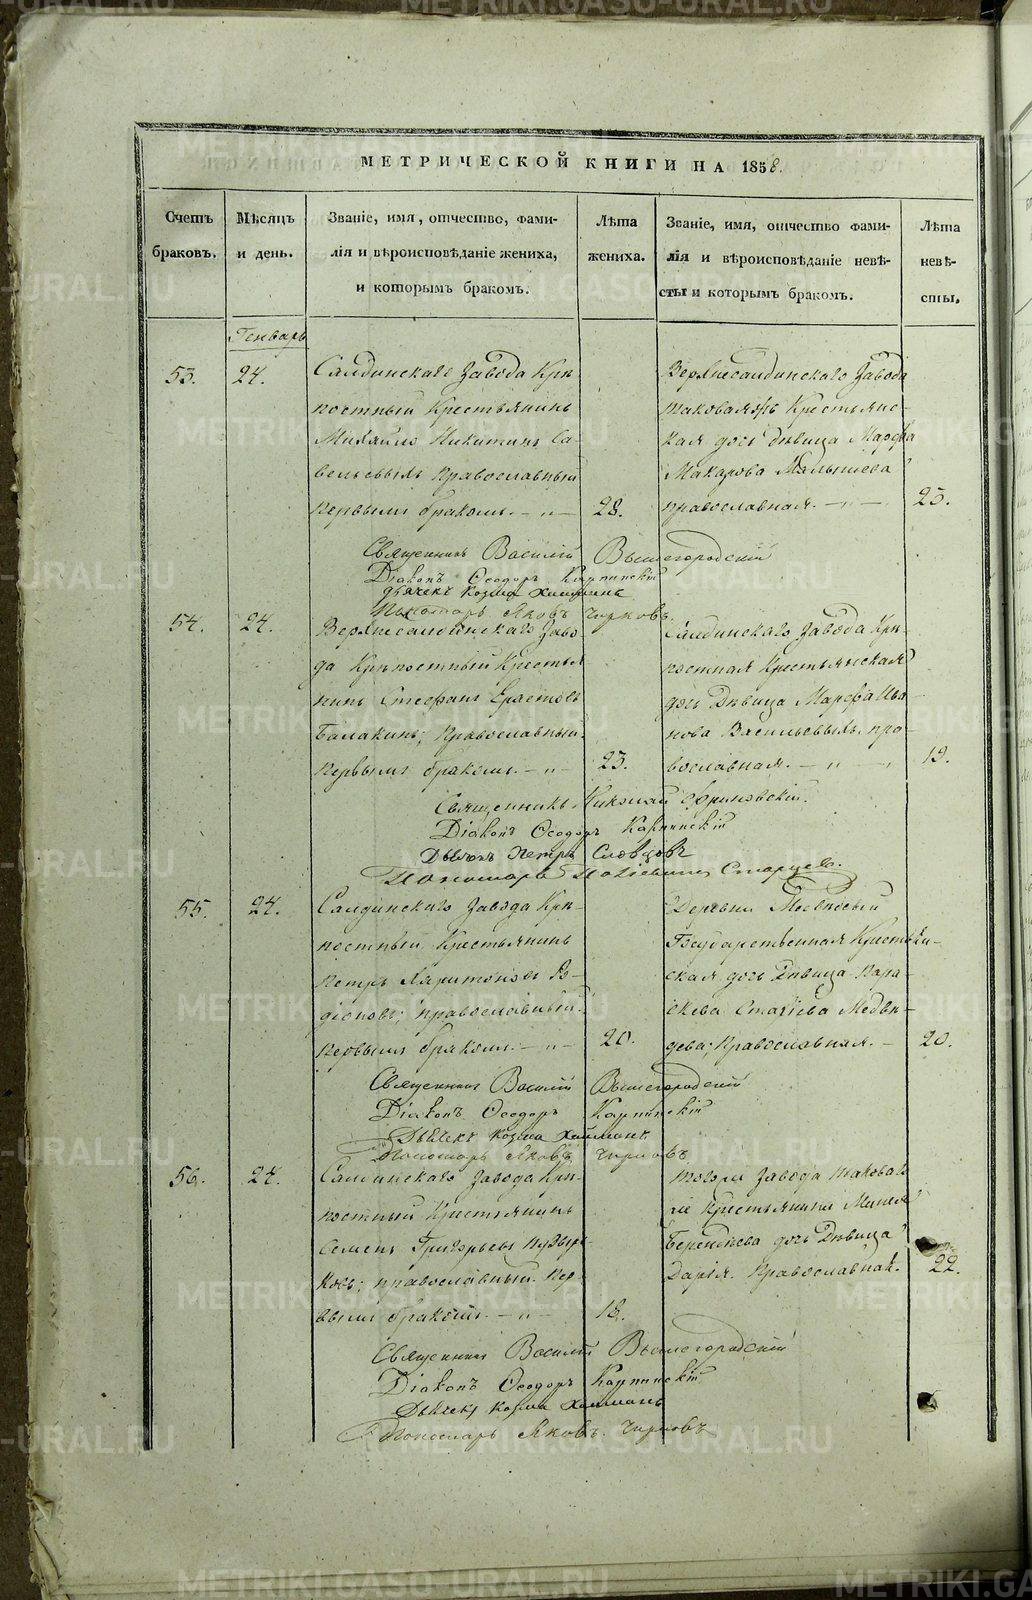 METRIKI.GASO-URAL.RU
МЕТРИЧЕСКОЙ КНИГИ НА 1858.
Счетъ браковъ.
Мѣсяцъ и день.
Званіе, имя, отчество, фами-
лія и вѣроисповѣданіе жениха,
и которымъ бракомъ.
Лѣта жениха.
Званіе, имя, отчество фами-
лія и вѣроисповѣданіе невѣ-
сты и которымъ бракомъ.
Лѣта невѣ-
сты.
Генварь
53.
24.
Салдинскаго Завода Крѣ
постный Крестьянинъ
Михайло Никитинъ Са-
вельевыхъ Православный
первымъ бракомъ. - „ -
28.
Верхнесалдинскаго Завода
таковаяжъ Крестьянс-
кая дочь дѣвица Марфа
Макарова Малышева
православная. - „ -
25.
Священникъ Василій Вышегородскій
Діаконъ Ѳеодоръ Карпинскій
дьячекъ Козма
Пономарь Яковъ Чирковъ.
54.
24.
Верхнесалдинскаго Заво-
да Крѣпостный Крестья
нинъ Стефанъ Ерастовъ
Балакинъ; Православный.
первымъ бракомъ. - „ -
23.
Салдинскаго Завода Крѣ-
постная Крестьянская
дочь Дѣвица Марфа Ива
нова Васильевыхъ. пра-
вославная. - „ -
19.
Священникъ Николай
Діаконъ Ѳеодоръ Карпинскій
Дьячекъ Петръ Словцовъ
Пономарь Старцевъ.
55.
24.
Салдинскаго Завода Крѣ-
постный Крестьянинъ
Петръ Харитоновъ Ро-
діоновъ; православный.
первымъ бракомъ. - „ -
20.
Деревни
Государственная Крестьян-
ская дочь Дѣвица Пара-
скева Стахіева Медвѣ-
дева; Православная. -
20.
Священникъ Василій Вышегородскій
Діаконъ Ѳеодоръ Карпинскій
Дьячекъ Козма
Пономарь Яковъ Чирковъ
56.
24.
Салдинскаго Завода Крѣ-
постный Крестьянинъ
Семенъ Григорьевъ Пузыр-
ковъ; православный. Пер-
вымъ бракомъ. - „ -
18.
тогоже Завода таковаго
же Крестьянина
Берендѣева дочь Дѣвица
Дарія. Православная.
22.
Священникъ Василій Вышегородскій
Діаконъ Ѳеодоръ Карпинскій
Дьячекъ Козма
Пономарь Яковъ Чирковъ